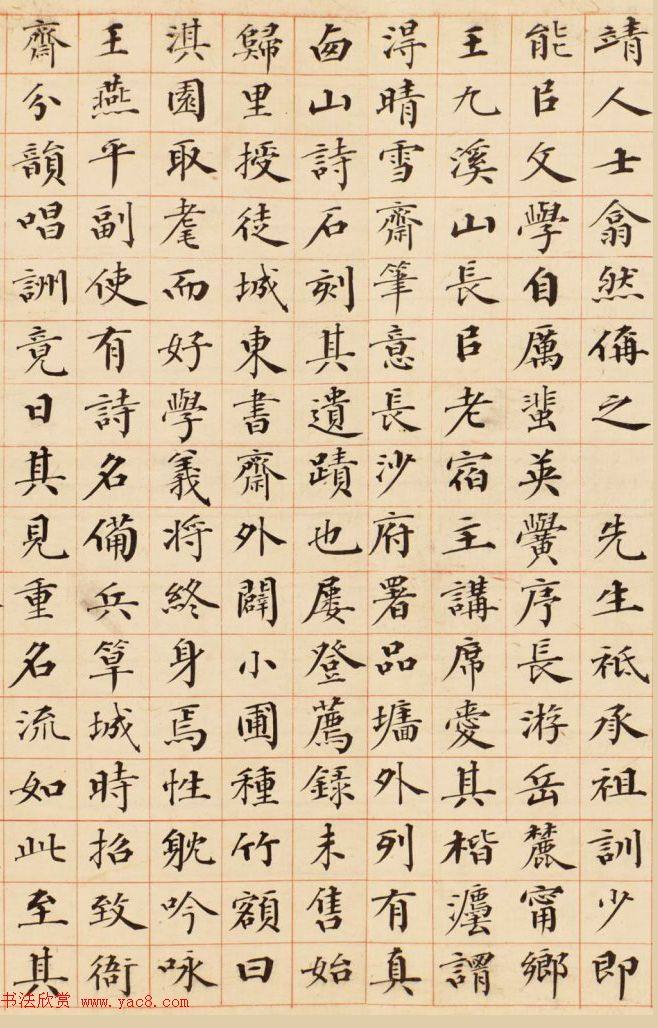 靖人士翕然偁之　先生祗承祖訓少即
能㠯文學自厲蜚英黌序長游岳麓甯鄉
王九溪山長㠯老宿主講席愛其楷灋謂
淂晴雪齋筆意長沙府署品墉外列有真
卥山詩石刻其遺蹟也屢登薦錄未售始
歸里授徒城東書齋外闢小圃種竹額曰
淇園取耄而好學義將終身焉性躭吟咏
王燕平副使有詩名備兵筸城時招致衙
齋分韻唱詶竟日其見重名流如此至其
书法欣赏 www.yac8.com